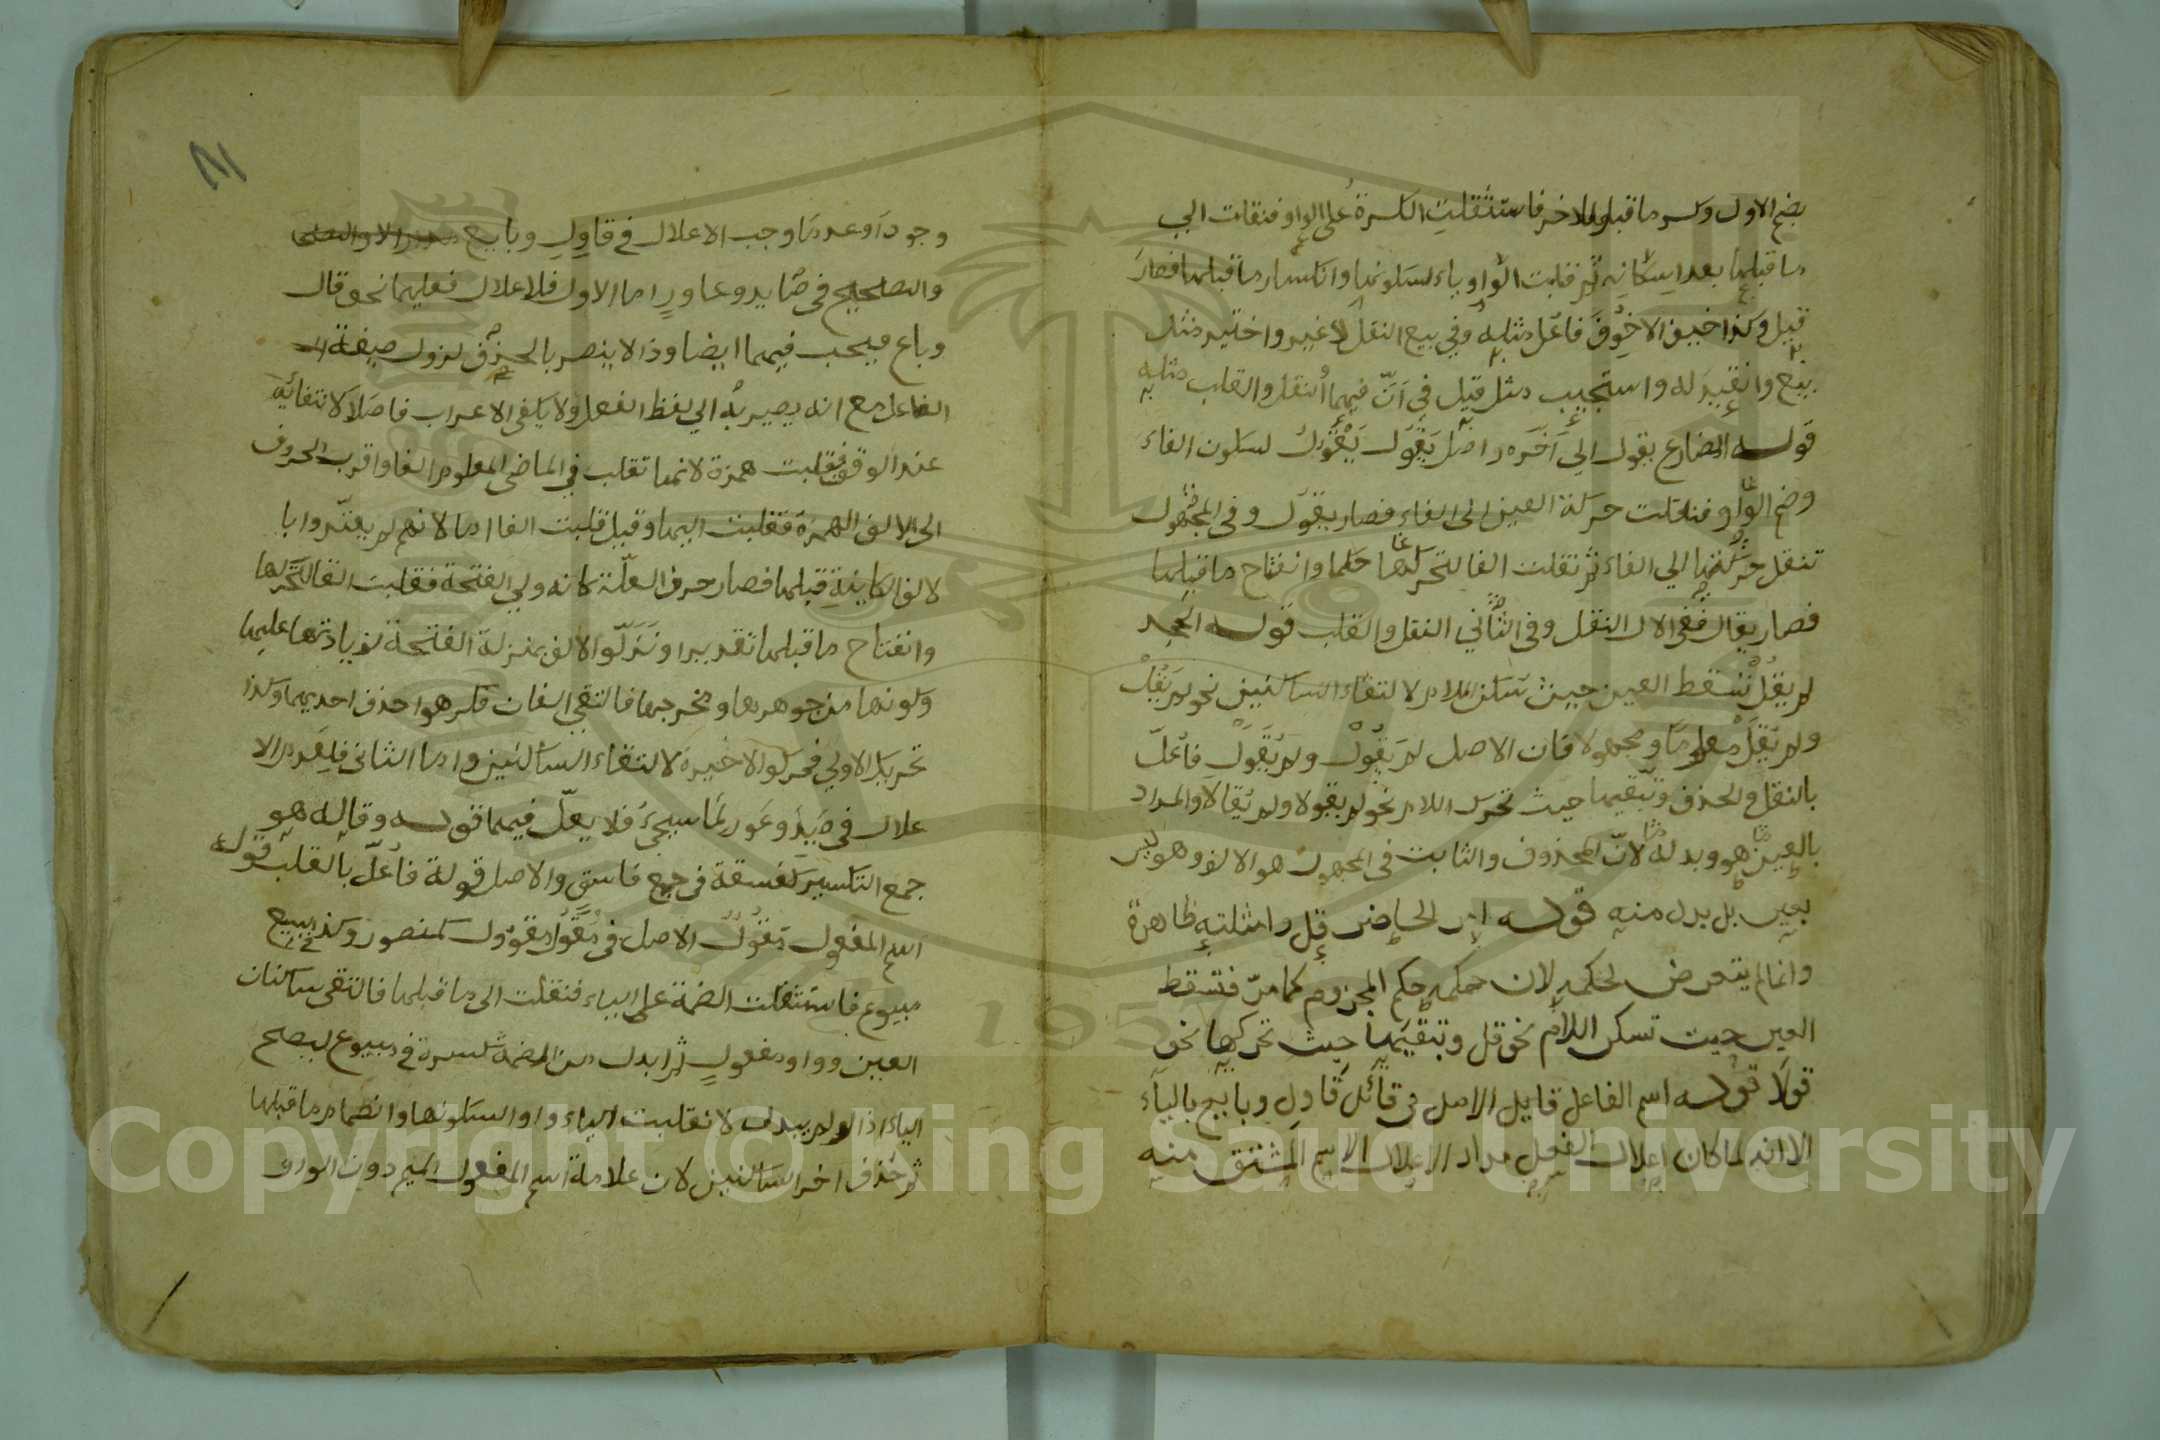 بضم الاول وكسر ما قبل الاخر فاستثقلت الكسرة على الواو فنقلت الى
ما قبلها بعد اسكانه ثم قلبت الواو ياء لسكونها وانكسار ما قبلها فصار
قيل وكذا خيف الاخوف فاعل مثله وفي بيع النقل لا غير واختير مثل
بيع وانقيد له واستجيب مثل قيل في ان فيهما النقل والقلب مثله
قوله المضارع يقول الى آخره واصل يقول يقول لسكون الفاء
وضم الواو فنقلت حركة العين الى الفاء فصار يقول وفي المجهول
تنقل حركتها الى الفاء ثم تقلب الفا لتحركها حكما وانفتاح ما قبلها
فصار يقال ففي الاول النقل وفي الثاني النقل والقلب قوله الجحد
لم يقل تسقط العين حيث تسكن اللام لالتقاء الساكنين نحو لم يقل
ولم يقل معلوما ومجهولا فان الاصل لم يقول ولم يقول فاعل
بالنقل والحذف وتبقيها حيث تحرك اللام نحو لم يقولا ولم يقالا والمراد
بالعين هو وبدله لان المحذوف والثابت في المجهول هو الالف وهو ليس
بعين بل بدل منه قوله امر الحاضر قل وامثلته ظاهرة
وانما لم يتعرض لحكمه لان حكمه حكم المجزوم كما مر فتسقط
العين حيث تسكن اللام نحو قل وتبقيها حيث تحركها نحو
قولا قوله اسم الفاعل قايل الاصل في قائل قاول وبايع بالياء
الا انه لما كان اعلال الفعل مدار الاعلال الاسم المشتق منه
٨١
وجودا وعدما وجب الاعلال في قاول وبايع
والتصحيح في صايد وعاور اما الاول فلاعلال فعليهما نحو قال
وباع فيجب فيهما ايضا وذا لا ينصر بالحذف لزول صيغة
الفاعل مع انه يصير به الى لفظ الفعل ولا يكفى الاعراب فاصلا لانتفائه
عند الوقف فقلبت همزة لانها تقلب في الماضي المعلوم الفا واقرب الحروف
الى الالف الهمزة فقلبت اليها وقيل قلبت الفا اما لانهم لم يعتدوا با
لالف الكاينة قبلها فصار حرف العلة كانه ولى الفتحة فقلبت الفا لتحركها
وانفتاح ما قبلها تقديرا او نزلوا الالف بمنزلة الفتحة لزيادتها عليها
وكونها من جوهرها ومخرجها فالتقى الفان فكرهوا حذف احديهما وكذا
تحريك الاولى فحركوا الاخيرة لالتقاء الساكنين واما الثاني فلعدم الا
علال في صيد وعور لما سيجئ فلا يعل فيهما قوله وقاله هو
جمع التكسير كفسقة في جمع فاسق والاصل قولة فاعل بالقلب قوله
اسم المفعول مقول الاصل في مقول مقوول كمنصور وكذا مبيع
مبيوع فاستثقلت الضمة على الياء فنقلت الى ما قبلها فالتقى ساكنان
العين وواو مفعول ثم ابدل من الضمة كسرة في مبيوع ليصح
الياء اذ لو لم يبدل لانقلبت الياء واوا لسكونها وانضمام ما قبلها
ثم حذف اخر الساكنين لان علامة اسم المفعول الميم دون الواو
Copyright © King Saud University
1957